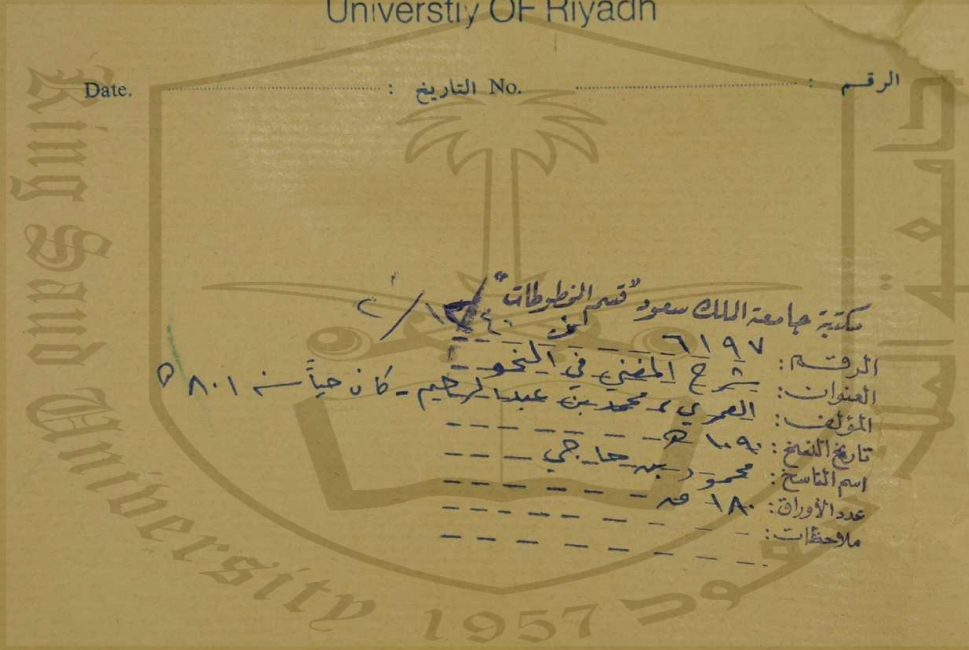 Universtiy OF Riyadh
الرقم : No. التاريخ : Date.
مكتبة جامعة الملك سعود "قسم المخطوطات"
الرقم: ٦١٩٧
العنوان: شرح المغني في النحو
المؤلف: العمري، محمد بن عبدالرحيم - كان حياً سنة ٨٠١ ه
تاريخ النسخ: ١٠٩٠ هـ
اسم الناسخ: محمود بن حاجي
عدد الأوراق: ١٨٠ ق
ملاحظات:
King Saud University 1957
جامعة الملك سعود